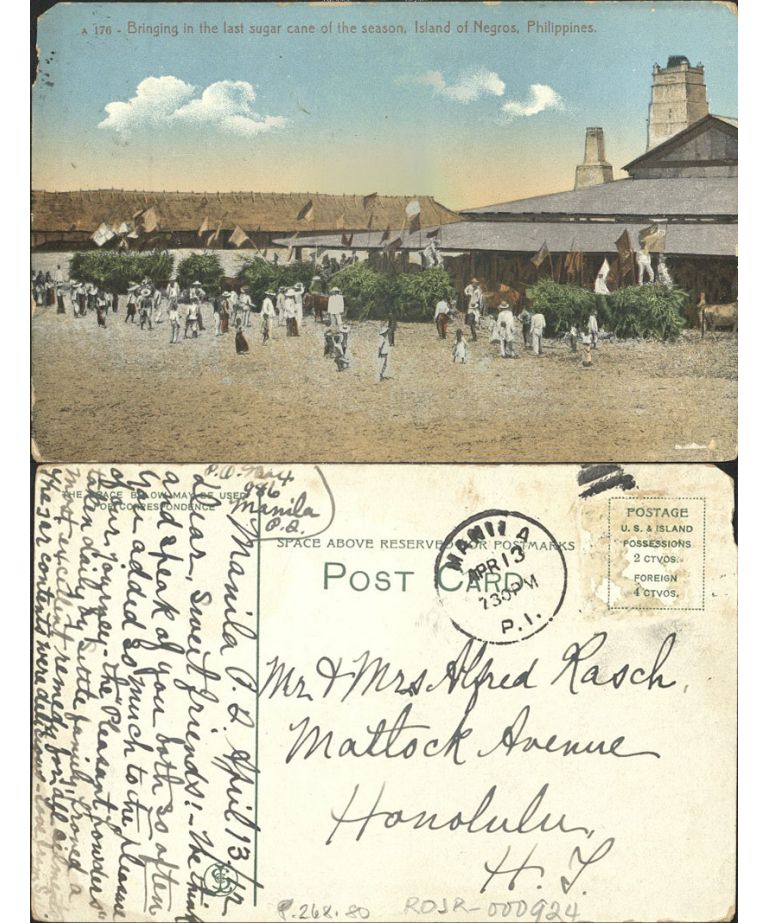 A 176 - Bringing in the last sugar cane of the season, Island of Negros, Philippines.
THE SPACE BELOW MAY BE USED
FOR CORRESPONDENCE
P.O. Box
986
Manila
P.I.
SPACE ABOVE RESERVED FOR POSTMARKS
POST CARD
MANILA
APR 13
7 30 PM
P.I.
POSTAGE
U.S. & ISLAND
POSSESSIONS
2 CTVOS.
FOREIGN
4 CTVOS.
Mr & Mrs Alfred Rasch,
Mattock Avenue
Honolulu,
H.T.
Manila P.I. April 13/12
Dear, Sweet friends! - We think
and speak of you both so often
You added so much to the pleasure
of our journey - the "Pleasant powders"
taken daily by little family proved a
most excellent remedy for all
the jar contents were delicious
P.268.80 ROJR-000924